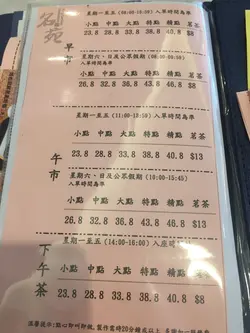 茗苑
早市
星期一至五 (06:00-10:50) 入單時間為準
小點 中點 大點 特點 精點 茗茶
23.8 28.8 33.8 38.8 40.8 $8
星期六、日及公眾假期
入單時間為準
小點 中點 大點 特點 精點 茗茶
26.8 32.8 38.8 43.8 46.8 $8
星期一至五 (11:00-13:50) 入單時間為準
午市
小點 中點 大點 特點 精點 茗茶
23.8 28.8 33.8 38.8 40.8 $13
星期六、日及公眾假期 (10:00-15:45)
入單時間為準
小點 中點 大點 特點 精點 茗茶
26.8 32.8 38.8 43.8 46.8 $8
下午茶
星期一至五 (14:00-16:00) 入座
小點 中點 大點 特點 精點 茗茶
23.8 28.8 33.8 38.8 40.8 $8
溫馨提示：點心即叫即做，製作需時20分鐘或以上